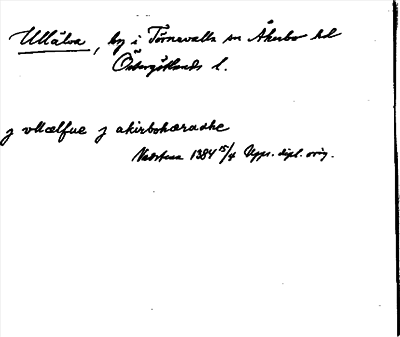 Ullälva, by i Törnevalla sn Åkerbo hd
Östergötlands l.
j vllælfue j akirboheradhe
Vadstena 1384 15/4 Upps. dipl. orig.